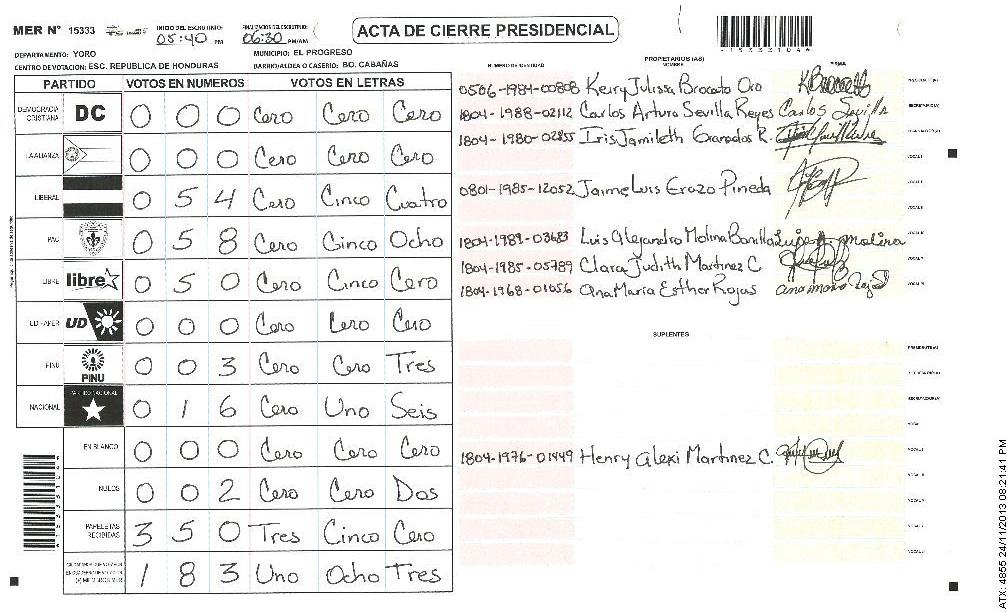 MER Nº 15333 INICIO DEL ESCRUTINIO: 05:40 PM FINALIZACION DEL ESCRUTINIO: 06:30 PM/AM
ACTA DE CIERRE PRESIDENCIAL
DEPARTAMENTO: YORO MUNICIPIO: EL PROGRESO
CENTRO DE VOTACION: ESC. REPUBLICA DE HONDURAS BARRIO/ALDEA O CASERIO: BO. CABAÑAS
PARTIDO VOTOS EN NUMEROS VOTOS EN LETRAS
DEMOCRACIA CRISTIANA DC 0 0 0 Cero Cero Cero
LA ALIANZA 0 0 0 Cero Cero Cero
LIBERAL 0 5 4 Cero Cinco Cuatro
PAC 0 5 8 Cero Cinco Ocho
LIBRE libre 0 5 0 Cero Cinco Cero
UD FAPER UD 0 0 0 Cero Cero Cero
PINU PINU 0 0 3 Cero Cero Tres
NACIONAL PARTIDO NACIONAL 0 1 6 Cero Uno Seis
EN BLANCO 0 0 0 Cero Cero Cero
NULOS 0 0 2 Cero Cero Dos
PAPELETAS RECIBIDAS 3 5 0 Tres Cinco Cero
1 8 3 Uno Ocho Tres
PROPIETARIOS (AS)
NUMERO DE IDENTIDAD NOMBRE FIRMA
0506-1984-00808 Keiry Julissa Brocato Oro
1804-1988-02112 Carlos Arturo Sevilla Reyes Carlos Sevilla
1804-1980-02855 Iris Jamileth Granados R.
0801-1985-12052 Jaime Luis Erazo Pineda
1804-1989-03683 Luis Alejandro Molina Bonilla
1804-1985-05789 Clara Judith Martinez C
1804-1968-01056 Ana Maria Esther Rojas
SUPLENTES
1804-1976-01449 Henry Alexi Martinez C.
ATX: 4855 24/11/2013 08:21:41 PM